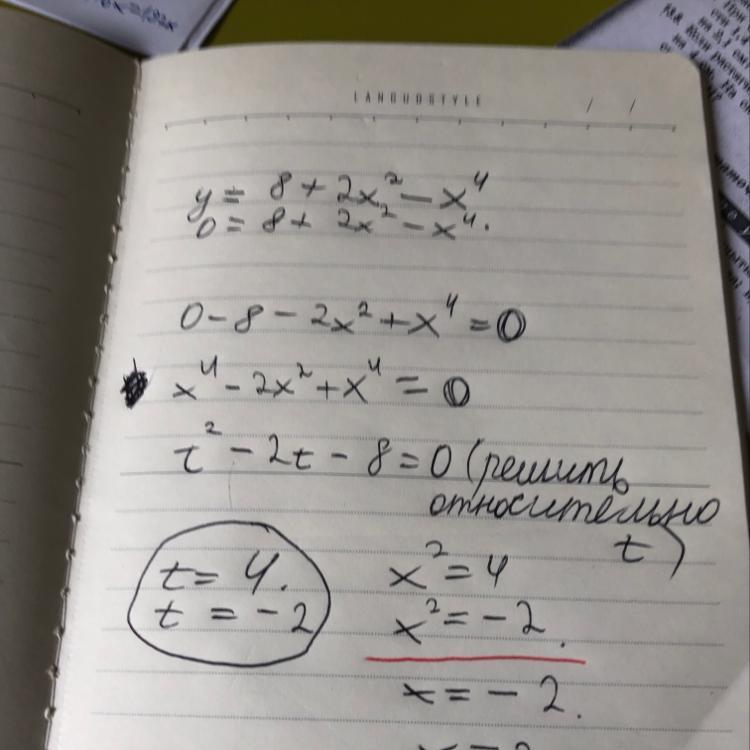 LANGUOSTYLE
/ /
y = 8 + 2x² - x⁴
0 = 8 + 2x² - x⁴.
0 - 8 - 2x² + x⁴ = 0
x⁴ - 2x² + x⁴ = 0
t² - 2t - 8 = 0 (решить
относительно
t)
t = 4.
t = -2
x² = 4
x² = -2.
x = -2.